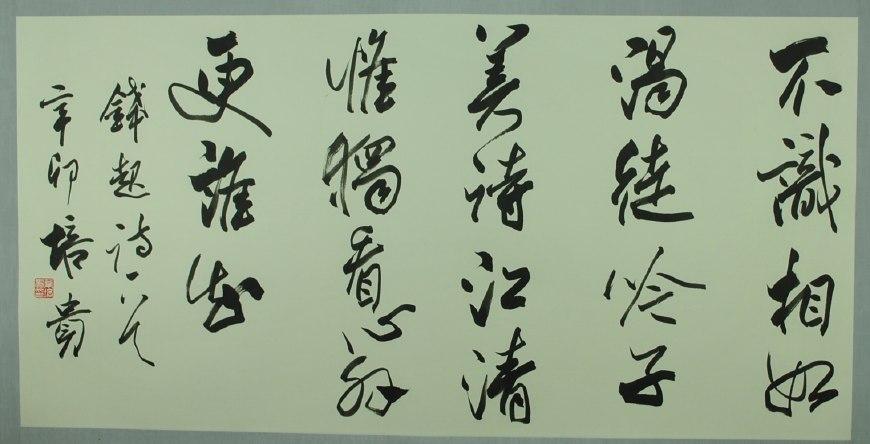 不識相如
渴徒吟子
美詩江清
惟獨看心外
更誰知
錢起詩一首
辛卯培貴